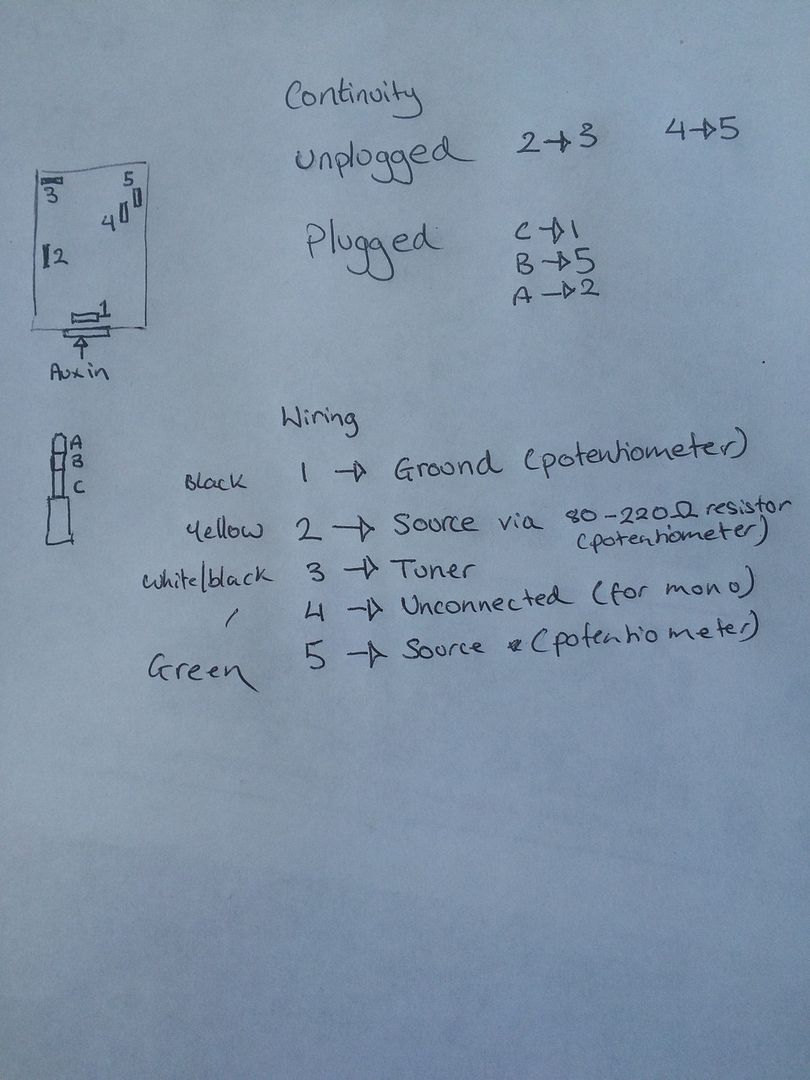 Continuity
Unplogged 2→3 4→5
Plugged C→1
B→5
A→2
3
5
4
2
1
Auxin
A
B
C
Wiring
Black 1 → Ground (potentiometer)
Yellow 2 → Source via 80-220Ω resistor
(potentiometer)
White/black 3 → Tuner
/ 4 → Unconnected (for mono)
Green 5 → Source (potentiometer)